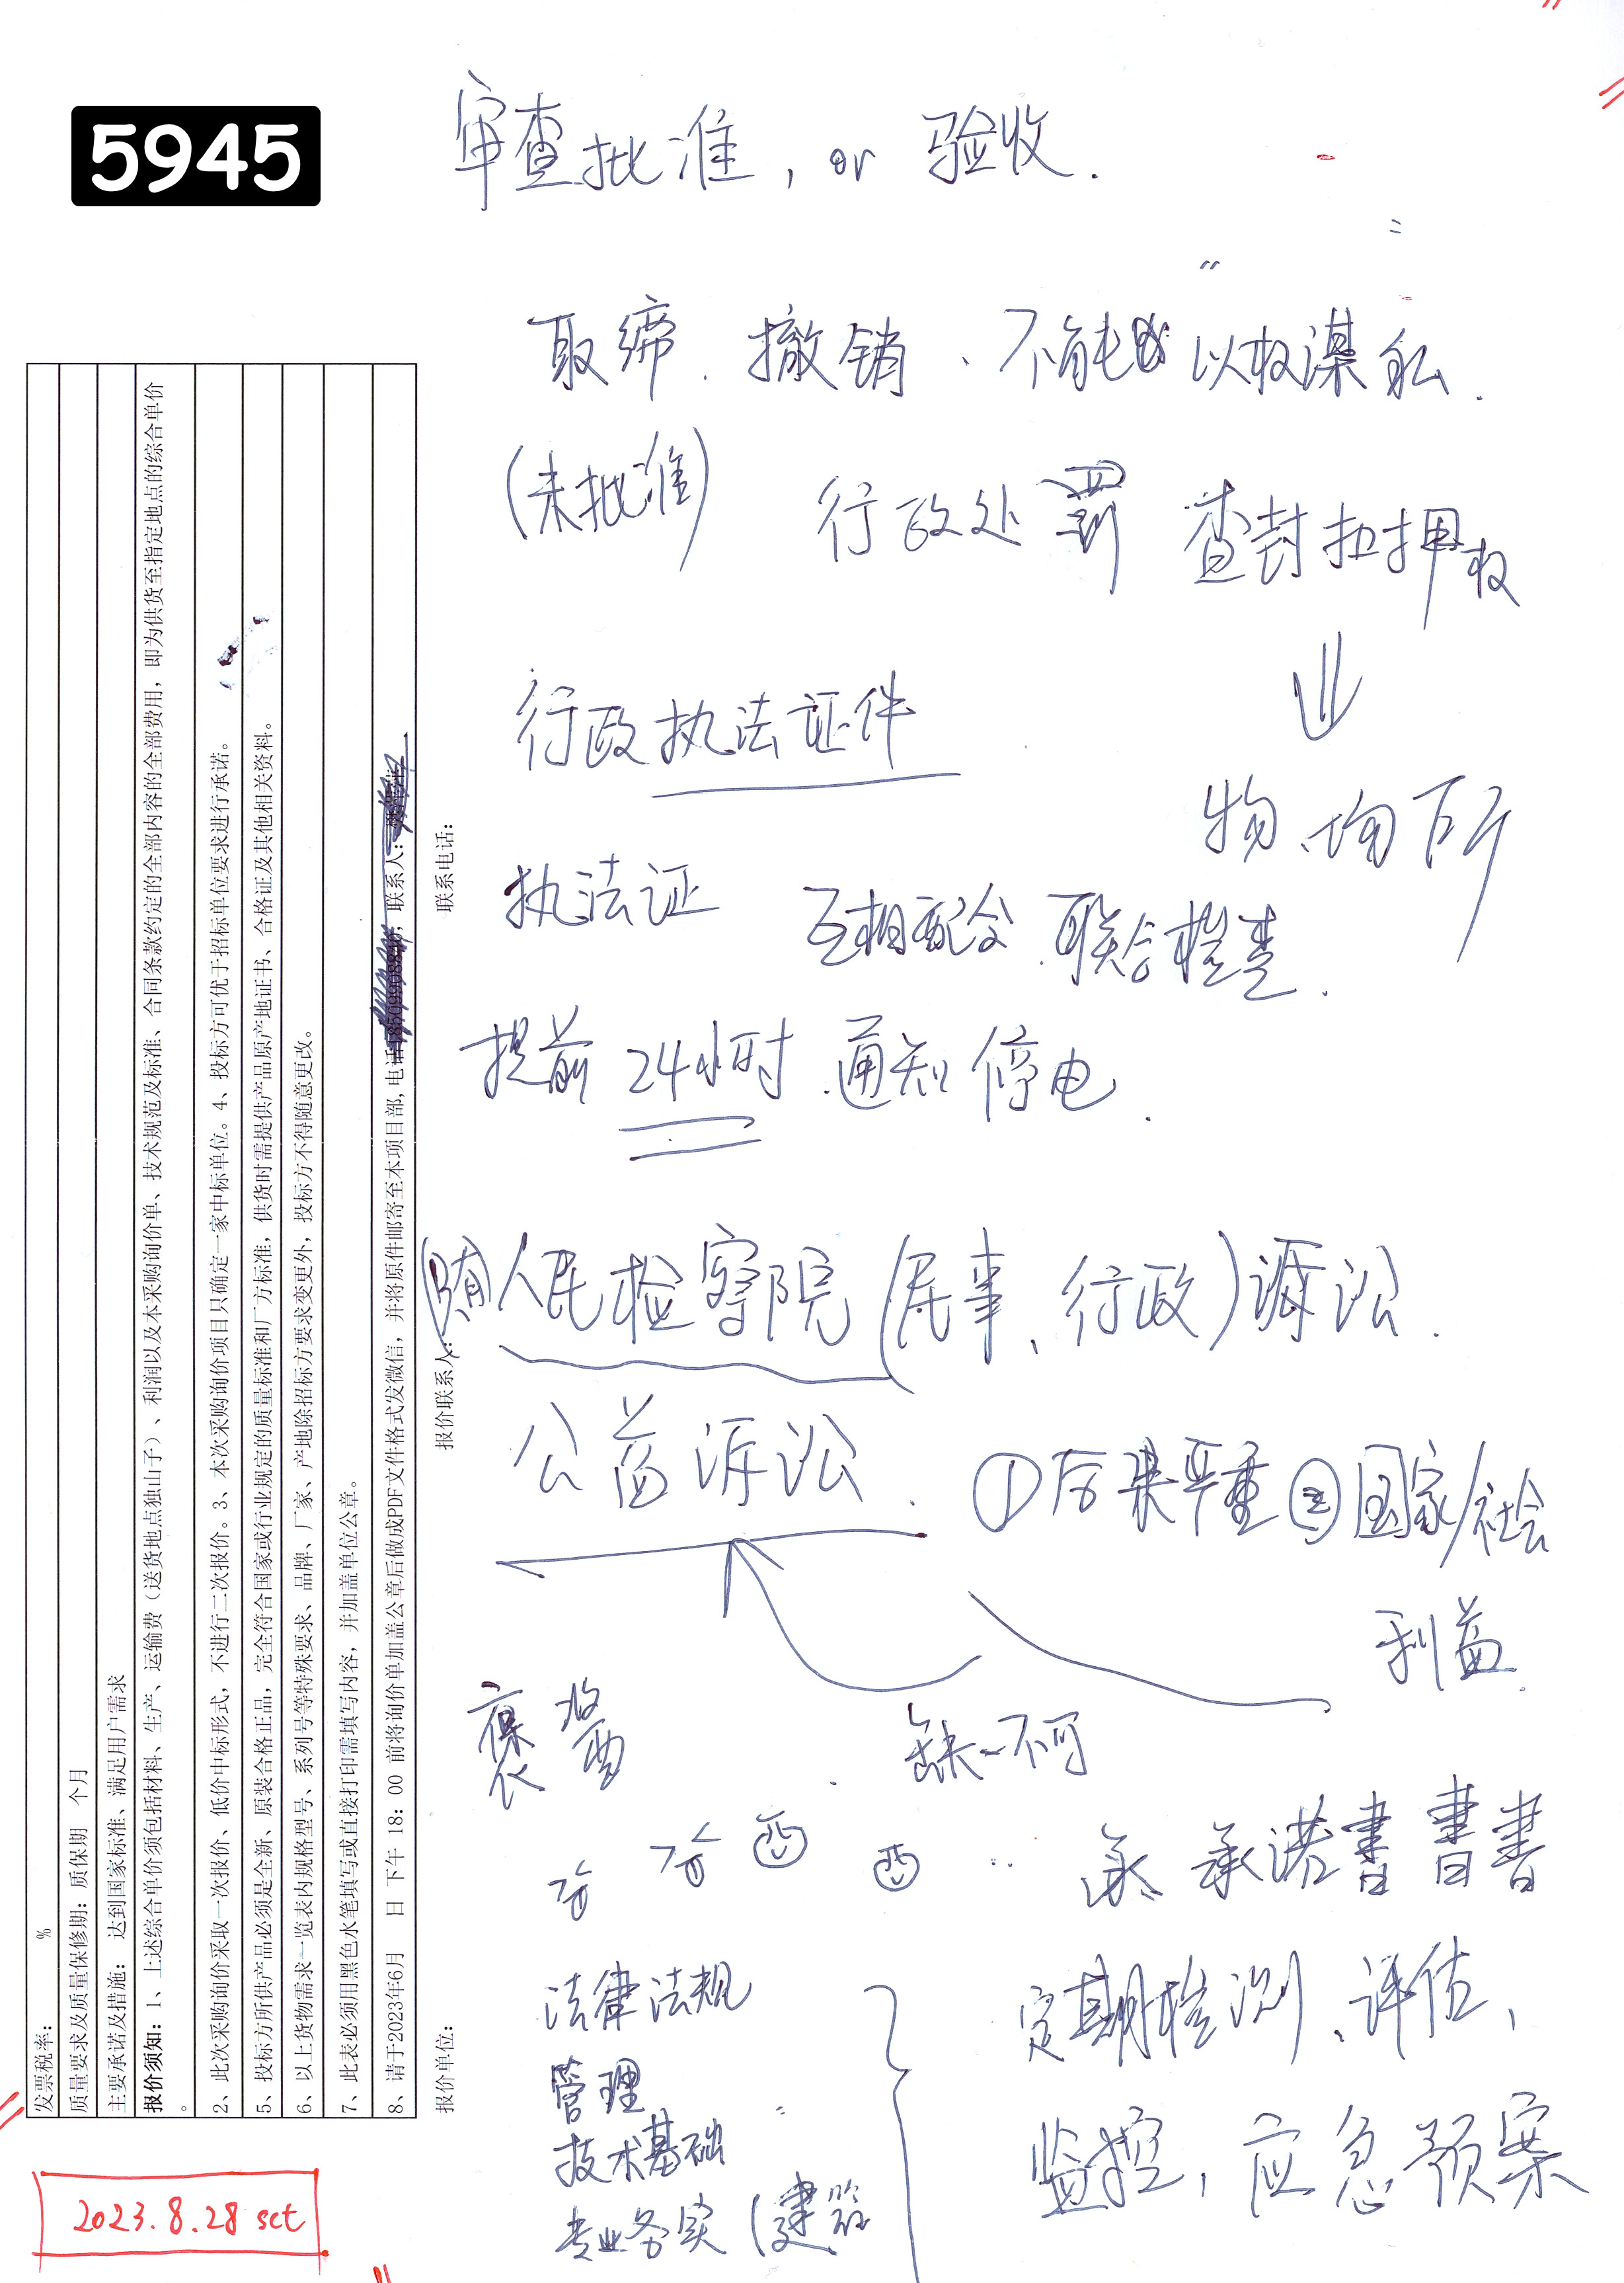 5945
审查批准, or 验收.
取缔. 撤销、不能 以权谋私.
(未批准) 行政处罚 查封扣押权
行政执法证件
物、场所
执法证 互相配合 联合检查.
提前 24小时 通知停电.
人民检察院(民事、行政)诉讼.
公益诉讼. ①后果严重 ② 国家/社会
利益.
缺一不可
酉 酉 承 承诺書 書 書
法律法规
管理
技术基础
专业务实 (建筑
定期检测、评估、
监控, 应急预案
2023.8.28 sct
发票税率: %
质量要求及质量保修期: 质保期 个月
主要承诺及措施: 达到国家标准、满足用户需求
报价须知: 1、上述综合单价须包括材料、生产、运输费(送货地点独山子)、利润以及本采购询价单、技术规范及标准、合同条款约定的全部内容的全部费用, 即为供货至指定地点的综合单价
。
2、此次采购询价采取一次报价、低价中标形式, 不进行二次报价。3、本次采购询价项目只确定一家中标单位。4、投标方可优于招标单位要求进行承诺。
5、投标方所供产品必须是全新、原装合格正品, 完全符合国家或行业规定的质量标准和厂方标准, 供货时需提供产品原产地证书、合格证及其他相关资料。
6、以上货物需求一览表内规格型号、系列号等特殊要求、品牌、厂家、产地除招标方要求变更外, 投标方不得随意更改。
7、此表必须用黑色水笔填写或直接打印需填写内容, 并加盖单位公章。
8、请于2023年6月 日 下午 18: 00 前将询价单加盖公章后做成PDF文件格式发微信, 并将原件邮寄至本项目部, 电话 联系人:
报价单位: 报价联系人: 联系电话: